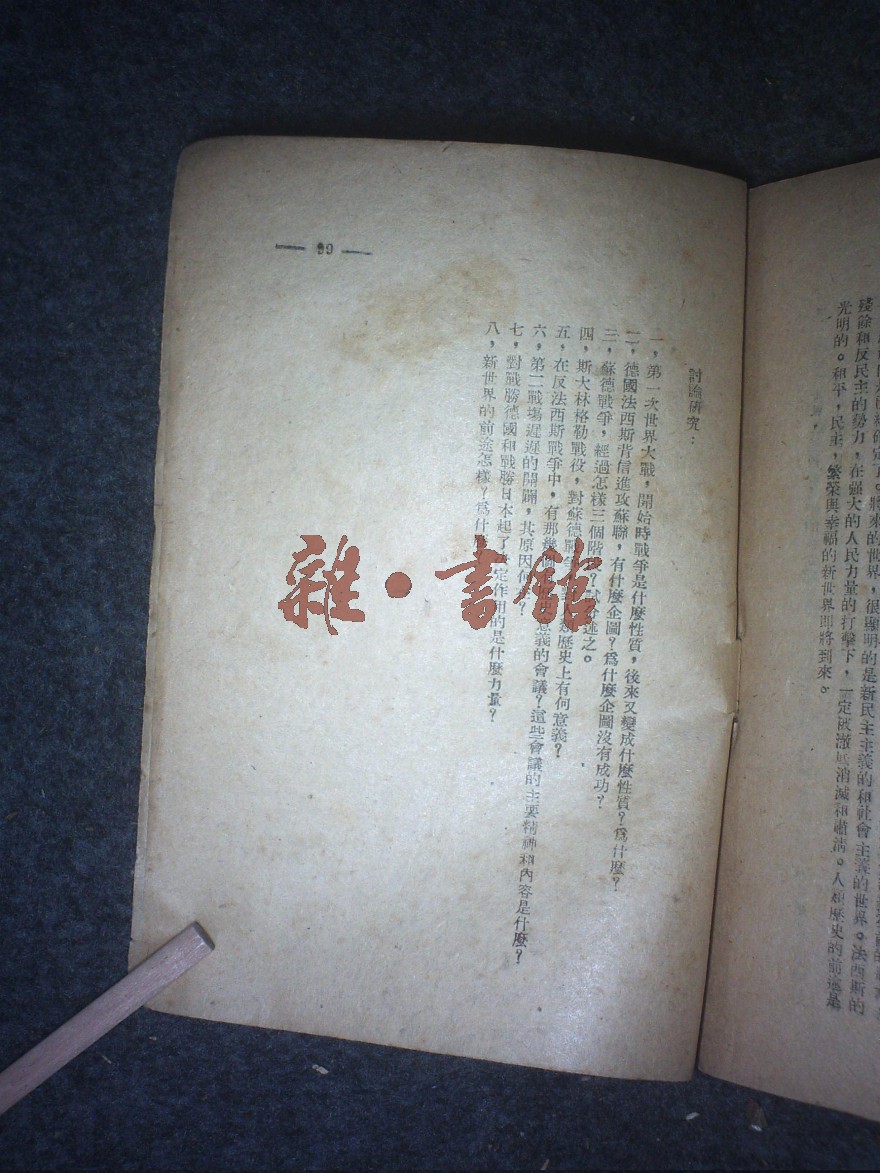 殘餘和反民主的勢力，在强大的人民力量的打擊下，一定被澈底消滅和肅清。人類歷史的前途是
光明的。和平，民主，繁榮與幸福的新世界即將到來。
討論研究：
一，第一次世界大戰，開始時戰爭是什麼性質，後來又變成什麼性質？爲什麼？
二，德國法西斯背信進攻蘇聯，有什麼企圖？爲什麼企圖沒有成功？
三，蘇德戰爭，經過怎樣三個階段？試分述之。
四，斯大林格勒戰役，對蘇德戰爭 歷史上有何意義？
五，在反法西斯戰爭中，有那幾個 意義的會議？這些會議的主要精神和內容是什麼？
六，第二戰塲遲遲的開闢，其原因何在？
七，對戰勝德國和戰勝日本起了决定作用的是什麼力量？
八，新世界的前途怎樣？爲什麼
— 99 —
雜·書館